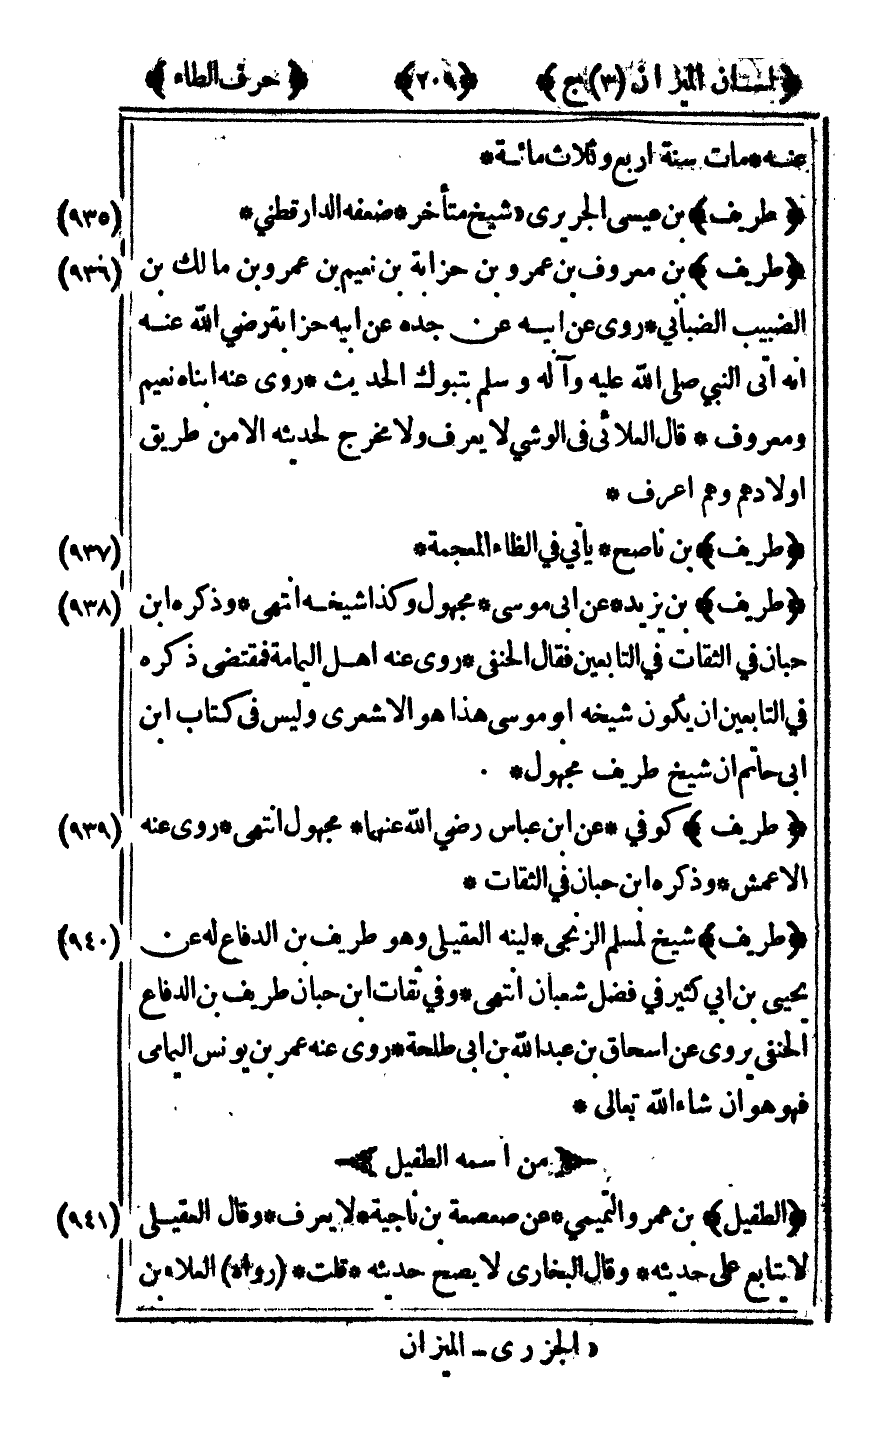 ﴿لسان الميزان (٣) ج﴾ ﴿٢٠٩﴾ ﴿حرف الطاء﴾
عنه*مات سنة اربع وثلاث مائة*
﴿طريف﴾ بن عيسى الجريرى ٥ شيخ متأخر*ضعفه الدارقطني* (٩٣٥)
﴿طريف﴾ بن معروف بن عمرو بن حزابة بن نعيم بن عمرو بن مالك بن (٩٣٦)
الضبيب الضبابي*روى عن ابيه عن جده عن ابيه حزابة رضي الله عنه
انه اتى النبي صلى الله عليه وآله وسلم بتبوك الحديث*روى عنه ابناه نعيم
ومعروف * قال العلائى فى الوشي لا يعرف ولا مخرج لحديثه الا من طريق
اولادهم وهم اعرف *
﴿طريف﴾ بن ناصح* يأتي في الظاء المعجمة* (٩٣٧)
﴿طريف﴾ بن يزيد*عن ابى موسى*مجهول وكذا شيخه انتهى*وذكره ابن (٩٣٨)
حبان في الثقات في التابعين فقال الحنفى*روى عنه اهل اليمامة فمقتضى ذكره
في التابعين ان يكون شيخه ابو موسى هذا هو الاشعرى وليس فى كتاب ابن
ابى حاتم ان شيخ طريف مجهول*
﴿طريف﴾ كوفي *عن ابن عباس رضي الله عنهما* مجهول انتهى*روى عنه (٩٣٩)
الاعمش*وذكره ابن حبان في الثقات *
﴿طريف﴾ شيخ لمسلم الزنجى*لينه العقيلى وهو طريف بن الدفاع له عن (٩٤٠)
يحيى بن ابي كثير في فضل شعبان انتهى*وفي ثقات ابن حبان طريف بن الدفاع
الحنفى يروى عن اسحاق بن عبد الله بن ابى طلحة*روى عنه عمر بن يونس اليمامى
فهو هو ان شاء الله تعالى *
﴿من اسمه الطفيل﴾
﴿الطفيل﴾ بن عمرو التميمي*عن صعصعة بن ناجية*لا يعرف*وقال العقيلى (٩٤١)
لا يتابع على حديثه* وقال البخارى لا يصح حديثه *قلت* (رواه) العلاء بن
٥ الجزرى ـ الميزان